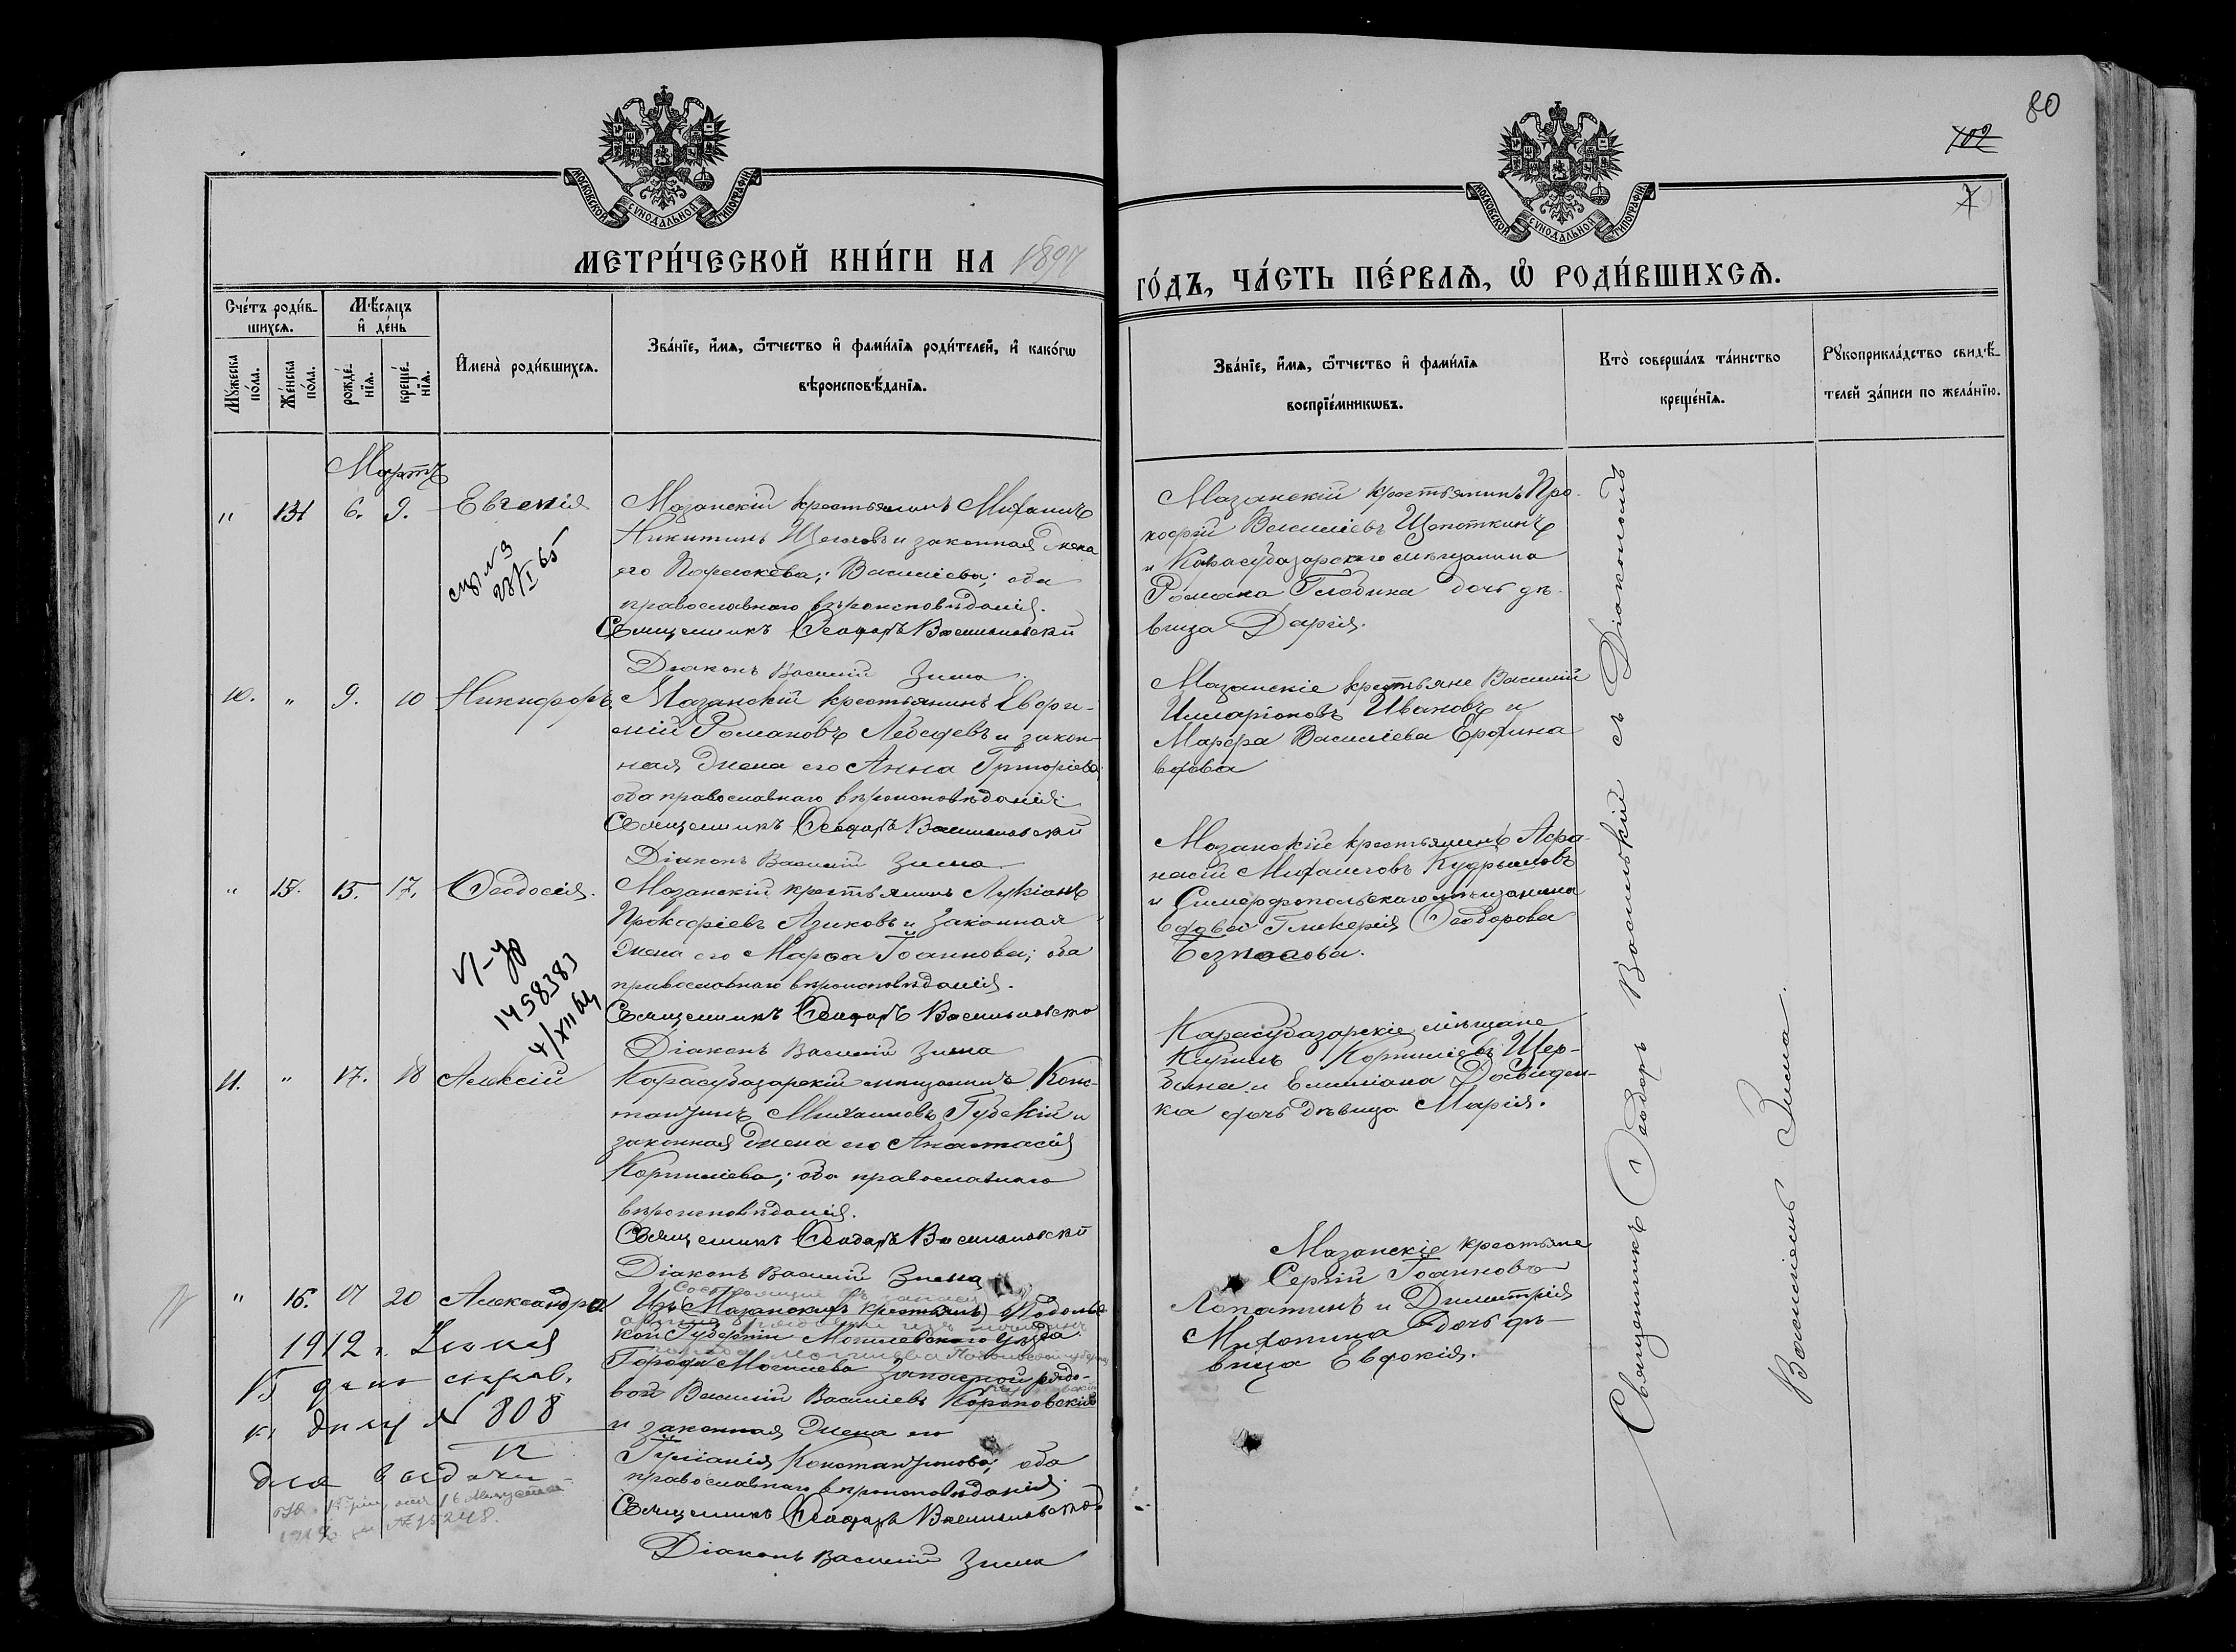 80
102
МОСКОВСКОЙ СУНОДАЛЬНОЙ ТИПОГРАФІИ
МОСКОВСКОЙ СУНОДАЛЬНОЙ ТИПОГРАФІИ
МЕТРИ́ЧЕСКОЙ КНИ́ГИ НА 1897
ГО́ДЪ, ЧА́СТЬ ПЕ́РВАѦ, Ѡ РОДИ́ВШИХСѦ.
Сче́тъ роди́в-
шихсѧ.
Мꙋ́жеска
по́ла.
Же́нска
по́ла.
Мѣ́сѧцъ
и̑ де́нь
рожде́-
нїѧ.
креще́-
нїѧ.
И̑мена̀ роди́вшихсѧ.
Зва́нїе, и̑́мѧ, ѻ҆́тчество и̑ фами́лїѧ роди́телей, и̑ како́гѡ
вѣроисповѣ́данїѧ.
Зва́нїе, и̑́мѧ, ѻ҆́тчество и̑ фами́лїѧ
воспрїе́мникѡвъ.
Кто̀ соверша́лъ та́инство
креще́нїѧ.
Рꙋкоприкла́дство свидѣ́-
телей за́писи по жела́нїю.
Мартъ
" 131 6. 9. Евгенія
Мазанскій крестьянинъ Михаилъ
Никитинъ Щегловъ и законная жена
его Параскева Василіева; оба
православнаго вѣроисповѣданія.
Священникъ Ѳеодоръ Васильковскій
Діаконъ Василій Зима
Мазанскій крестьянинъ Про-
кофій Василіевъ Щепоткинъ
и Карасубазарскаго мѣщанина
Романа дочь дѣ-
вица Дарія.
28/I 65
10. " 9. 10 Никифоръ
Мазанскій крестьянинъ Евфи-
мій Романовъ Лебедевъ и закон-
ная жена его Анна Григоріева;
оба православнаго вѣроисповѣданія.
Священникъ Ѳеодоръ Васильковскій
Діаконъ Василій Зима
Мазанскіе крестьяне Василій
Илларіоновъ Ивановъ и
Марфа Василіева Ерохина
вдова
" 15. 15. 17. Ѳеодосія.
Мазанскій крестьянинъ Лукіанъ
Прокофіевъ Азиковъ и законная
жена его Марѳа Іоаннова; оба
православнаго вѣроисповѣданія.
Священникъ Ѳеодоръ Васильковскій
Діаконъ Василій Зима
Мазанскій крестьянинъ Афа-
насій Михаиловъ Кудрышовъ
и Симферопольскаго мѣщанина
вдова Гликерія Ѳеодорова
Безносова.
1458383
4/XII 64
11. " 17. 18 Алексій
Карасубазарскій мѣщанинъ Конс-
тантинъ Михаиловъ Губскій и
законная жена его Анастасія
Корниліева; оба православнаго
вѣроисповѣданія.
Священникъ Ѳеодоръ Васильковскій
Діаконъ Василій Зима
Карасубазарскіе мѣщане
Кириллъ Корниліевъ Щер-
бина и Емиліана
ка дочь дѣвица Марія.
" 16. 17 20 Александра
Изъ (Мазанскихъ крестьянъ) Подоль-
кой Губерніи Могилевскаго уѣзда
Города Могилева запасной рядо-
вой Василій Василіевъ Короповскій
и законная жена его
Іуліанія Константинова; оба
православнаго вѣроисповѣданія
Священникъ Ѳеодоръ Васильковскій
Діаконъ Василій Зима
Мазанскіе крестьяне
Сергій Іоанновъ
Лопатинъ и Димитрія
Михонина дочь дѣ-
вица Евдокія.
1912 г. Іюня
15 дня справ.
къ дѣлу № 808
12
для выдачи
16 Августа
№ 15248.
Священникъ Ѳеодоръ Васильковскій съ Діакономъ
Василіемъ Зима.